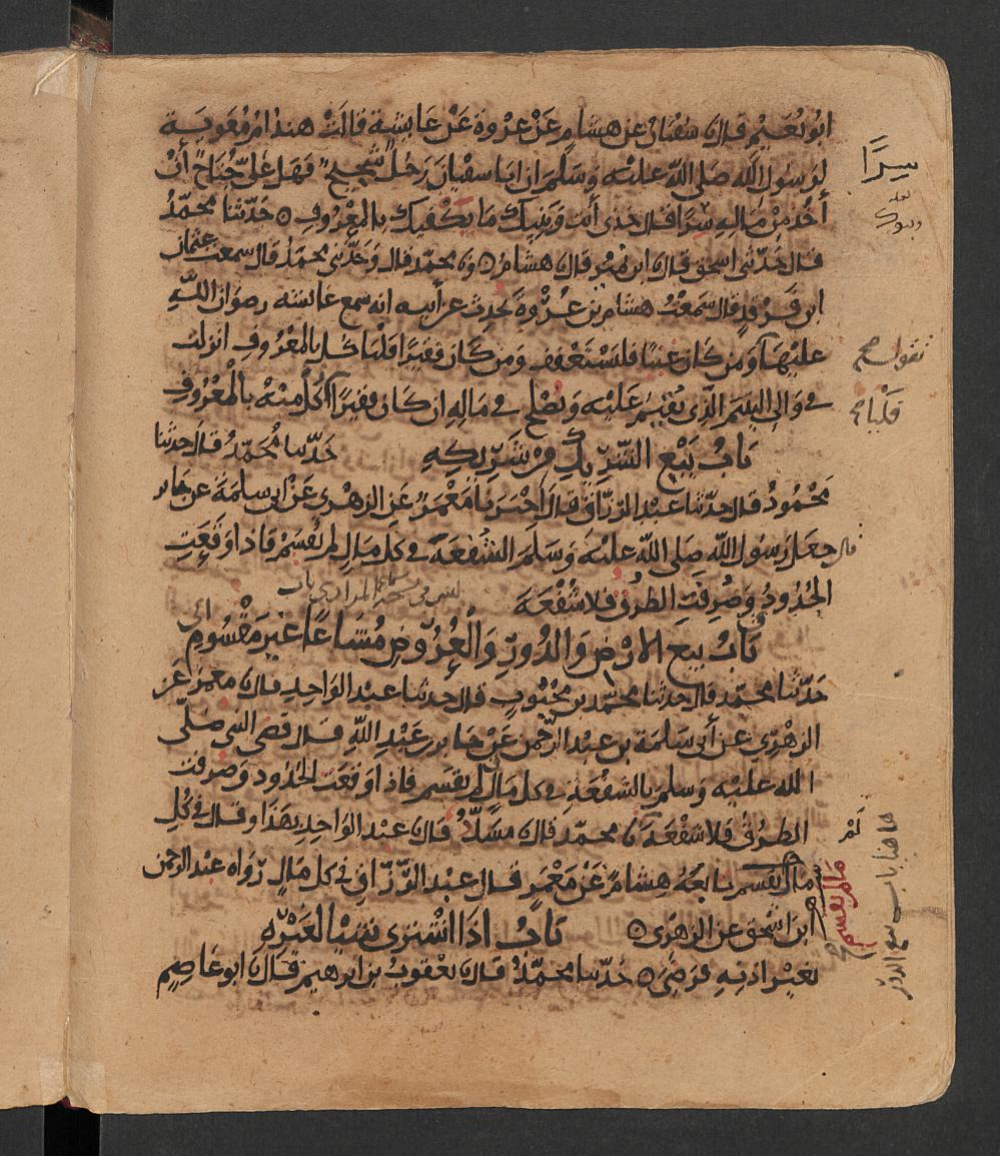 ابو نُعَيْمٍ قال نا سُفْيٰنُ عن هشامٍ عَنْ عُرْوةَ عَنْ عَايشةَ قالَتْ هندٌ امُّ مُعٰوية
لرَسُولِ الله صَلى اللهُ عليْه وسَلم ان ابا سفيٰنَ رَجُلٌ شحيحٌ فهَل عَلىَّ جُناحٌ أنْ
أخُذَ مِنْ مَالِهِ سِرًّا قال خذى أنتِ وَبَنِيكِ مَا يَكفيكِ بالمعْرُوفِ ۝ حَدّثنا محمّدٌ
قال حَدّثنى اسحٰق قال نا ابن نُميرٍ قال نا هشامٌ ۝ ونا محمّد قال وَحَدّثنى محمّدٌ قال سمعتُ عثمٰن
ابن فَرْقدٍ قال سَمعْتُ هشام بن عُرْوةَ يُحدِث عن أبيه انه سمع عائشه رضوان الله
عليْهَا وَمن كَان غنيًّا فليَسْتَعْفف وَمن كان فقيرًا فليَاكل بالمعْرُوفِ انزلت
فى وَالِى اليتيم الّذى يُقيْمُ عَليْه وَيُصْلح فى مَالِهِ ان كَانَ فقيرًا أكَلَ منْهُ بالْمعْرُوفِ
بَابُ بَيْع الشّرِيكِ مِنْ شَرِيكِهِ حَدّثنا مُحَمّدٌ قال حدثنا
مَحْمُودٌ قال حدّثنا عبد الرزّاق قال اخبَرَنا مَعْمَرٌ عَنِ الزهْرى عَنْ ابى سلمَةَ عن جَابر
قال جعَل رَسولُ الله صَلى اللهُ عليْه وَسَلم الشُفعَةَ فى كل مَالٍ لم يُقْسَمْ فَاذا وَقَعَتِ
الحُدُودُ وَصُرِفَتِ الطرُق فلا شُفْعَةَ
بَابُ بيع الارْضِ وَالدُورِ وَالْعُرُوضِ مُشَاعًا غيرَ مَقْسُومٍ
حَدّثنا محمّد قال حدثنا محمّد بن محْبُوبٍ قال حدثنا عبْد الوَاحِدِ قال نا معْمرٌ عَن
الزهْرِي عن أبى سَلمَةَ بن عبْد الرّحمن عَنْ جَابر بن عَبْدِ اللهِ قال قضَى النبى صَلّى
الله عليْه وَسلم بالشفْعَةِ فى كل مَالٍ لم يقسَم فاذا وَقعَت الحُدُود وَصرفت
الطرُقُ فلا شفْعَةَ نا محمّد قال نا مسَدّدٌ قال نا عبْد الوَاحِدِ بهٰذَا وقال فى كُلِ
مال لم يقسم تابَعَهُ هشامٌ عَنْ مَعْمَرٍ قال عبْد الرّزّاقِ فى كل مَالٍ رَوَاه عبْد الرحمٰن
ابن اسْحٰق عن الزهرى ۝ بَابُ اذَا اشْترى شيْئا لغَيْرِهِ
بغيْر اذنِهِ فرَضِىَ ۝ حَدّثنا محمّدٌ قال نا يعْقوبُ بن ابرٰهيم قال نا ابو عَاصِم
سِرًّا
وبنوك
فليا
لم
مال لم يقسم